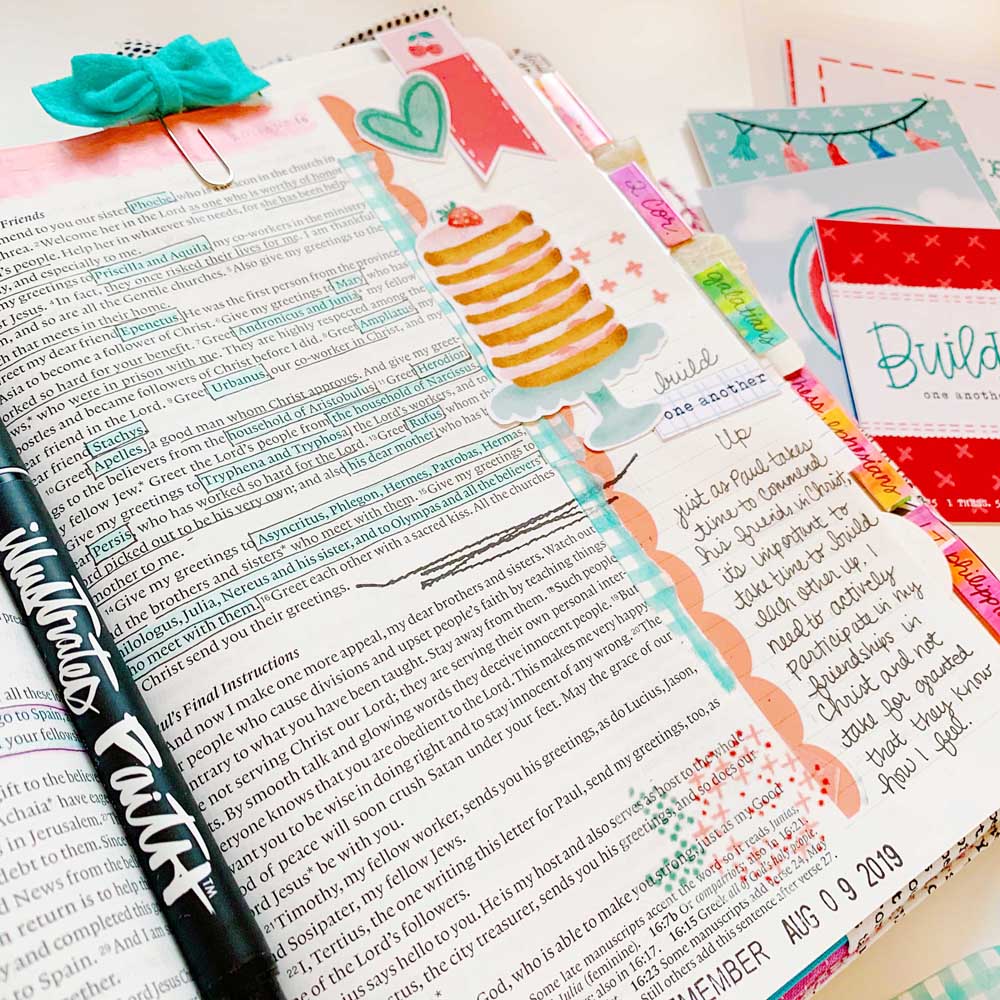 Friends
mend to you our sister Phoebe, who is a deacon in the church in
hrea. ² Welcome her in the Lord as one who is worthy of honor
's people. Help her in whatever she needs, for she has been help-
, and especially to me.
my greetings to Priscilla and Aquila, my co-workers in the ministry
st Jesus. ⁴ In fact, they once risked their lives for me. I am thankful
, and so are all the Gentile churches. ⁵ Also give my greetings to the
h that meets in their home.
reet my dear friend Epenetus. He was the first person from the province
Asia to become a follower of Christ. ⁶ Give my greetings to Mary, who has
orked so hard for your benefit. ⁷ Greet Andronicus and Junia,* my fellow
ws,* who were in prison with me. They are highly respected among the
ostles and became followers of Christ before I did. ⁸ Greet Ampliatus,
ear friend in the Lord. ⁹ Greet Urbanus, our co-worker in Christ, and my
ear friend Stachys.
Greet Apelles, a good man whom Christ approves. And give my greet-
gs to the believers from the household of Aristobulus. ¹¹ Greet Herodion,
y fellow Jew.* Greet the Lord's people from the household of Narcissus.
Give my greetings to Tryphena and Tryphosa, the Lord's workers, and to
Persis, who has worked so hard for the Lord. ¹³ Greet Rufus, whom the
ord picked out to be his very own; and also his dear mother, who has
mother to me.
¹⁴ Give my greetings to Asyncritus, Phlegon, Hermes, Patrobas, Hermas,
d the brothers and sisters* who meet with them. ¹⁵ Give my greetings to
ilologus, Julia, Nereus and his sister, and to Olympas and all the believers
o meet with them. ¹⁶ Greet each other with a sacred kiss. All the churches
Christ send you their greetings.
aul's Final Instructions
And now I make one more appeal, my dear brothers and sisters. Watch out
people who cause divisions and upset people's faith by teaching things
ontrary to what you have been taught. Stay away from them. ¹⁸ Such people
e not serving Christ our Lord; they are serving their own personal inter-
ts. By smooth talk and glowing words they deceive innocent people. ¹⁹ But
eryone knows that you are obedient to the Lord. This makes me very happy.
ant you to be wise in doing right and to stay innocent of any wrong. ²⁰ The
od of peace will soon crush Satan under your feet. May the grace of our
rd Jesus* be with you.
Timothy, my fellow worker, sends you his greetings, as do Lucius, Jason,
d Sosipater, my fellow Jews.
²² I, Tertius, the one writing this letter for Paul, send my greetings, too, as
ne of the Lord's followers.
ius says hello to you. He is my host and also serves as host to the whole
the city treasurer, sends you his greetings, and so does our
God, who is able to make you strong, just as my Good
build
one another
up
just as Paul takes
time to commend
his friends in Christ,
it's important to
take time to build
each other up. I
need to actively
participate in my
friendships in
Christ and not
take for granted
that they know
how I feel.
2 Cor
galatians
ephesians
philipp
Build
one anothe
1 THESS. 5
illustrated
Faith™
all these
go to Spain,
your fellows
ift to the believe
Achaia* have eage
s in Jerusalem.
debt to them. Since
d News from the beli
n return is to help the
and completed this
to Spain. ²⁹ And I am
AUG 09 2019
MEMBER